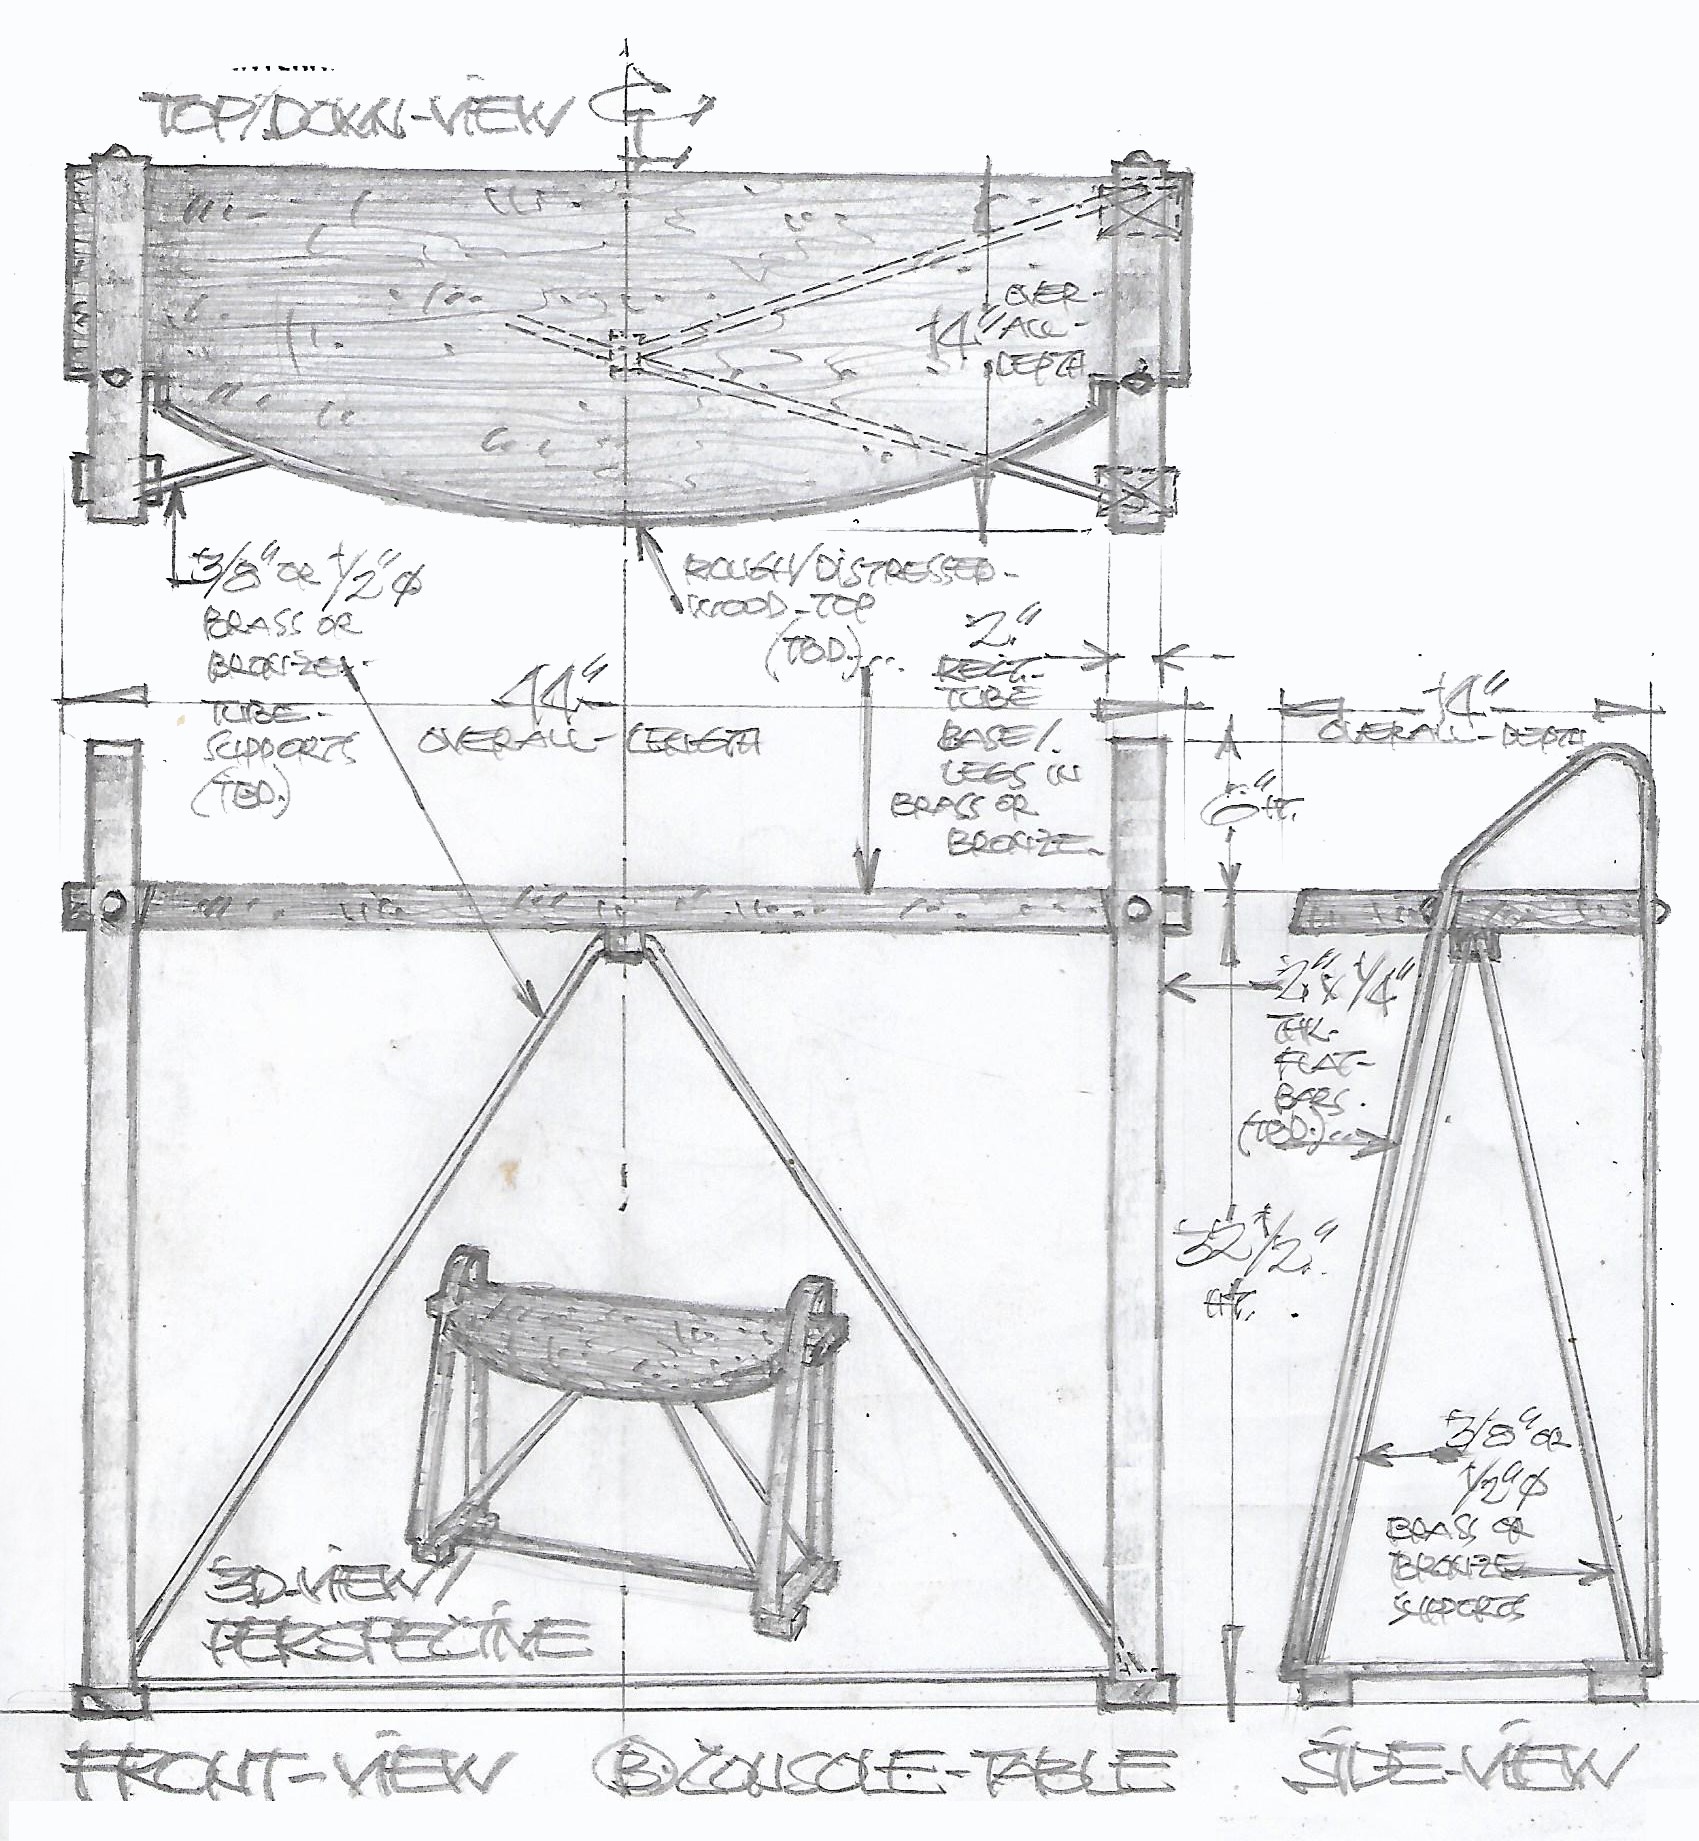 TOP/DOWN-VIEW
OVER-
14" ALL-
DEPTH
3/8" OR 1/2" Ø
BRASS OR
BRONZE
TUBE-
SUPPORTS
(TBD.)
ROUGH/DISTRESSED-
WOOD-TOP
(TBD.)
2"
RECT.
TUBE
BASE/
LEGS IN
BRASS OR
BRONZE.
44"
OVERALL-LENGTH
14"
OVERALL-DEPTH
6"
HT.
2" x 1/4"
THK.
FLAT-
BARS.
(TBD.)
32 1/2"
HT.
3/8" OR
1/2" Ø
BRASS OR
BRONZE
SUPPORTS
3D-VIEW/
PERSPECTIVE
FRONT-VIEW
B. CONSOLE-TABLE
SIDE-VIEW